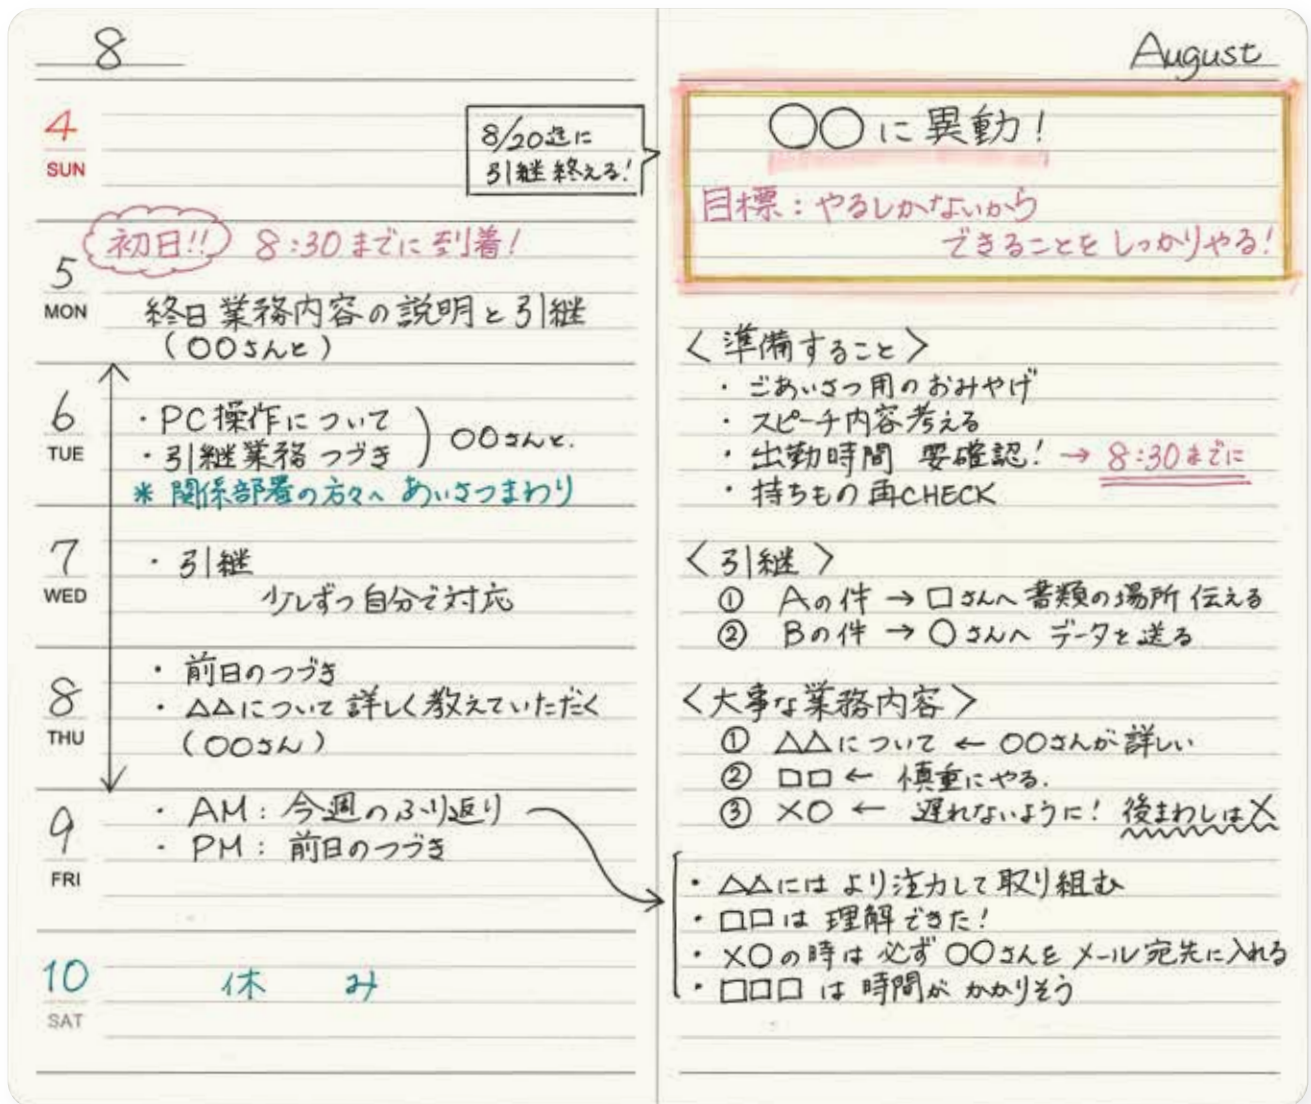 8
4
SUN
8/20迄に
引継終える!
初日!! 8:30までに到着!
5
MON
終日業務内容の説明と引継
(〇〇さんと)
6
TUE
・PC操作について
・引継業務つづき
〇〇さんと.
* 関係部署の方々へ あいさつまわり
7
WED
・引継
少しずつ自分で対応
8
THU
・前日のつづき
・△△について詳しく教えていただく
(〇〇さん)
9
FRI
・AM:今週のふり返り
・PM:前日のつづき
10
SAT
休 み
August
〇〇に異動!
目標:やるしかないから
できることをしっかりやる!
〈準備すること〉
・ごあいさつ用のおみやげ
・スピーチ内容考える
・出勤時間 要確認! → 8:30までに
・持ちもの再CHECK
〈引継〉
① Aの件 → □さんへ書類の場所伝える
② Bの件 → 〇さんへ データを送る
〈大事な業務内容〉
① △△について ← 〇〇さんが詳しい
② □□ ← 慎重にやる.
③ ×〇 ← 遅れないように! 後まわしは×
・△△には より注力して取り組む
・□□は 理解できた!
・×〇の時は 必ず〇〇さんを メール宛先に入れる
・□□□は 時間が かかりそう